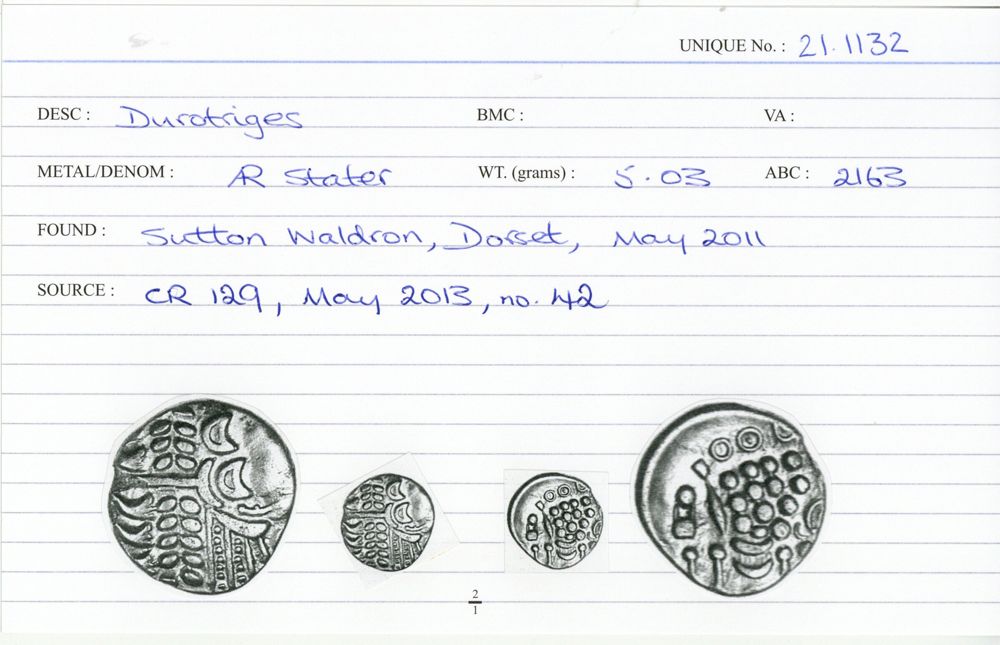 UNIQUE No. : 21.1132
DESC : Durotriges BMC : VA :
METAL/DENOM : AR Stater WT. (grams) : 5.03 ABC : 2163
FOUND : Sutton Waldron, Dorset, May 2011
SOURCE : CR 129, May 2013, no. 42
2
1